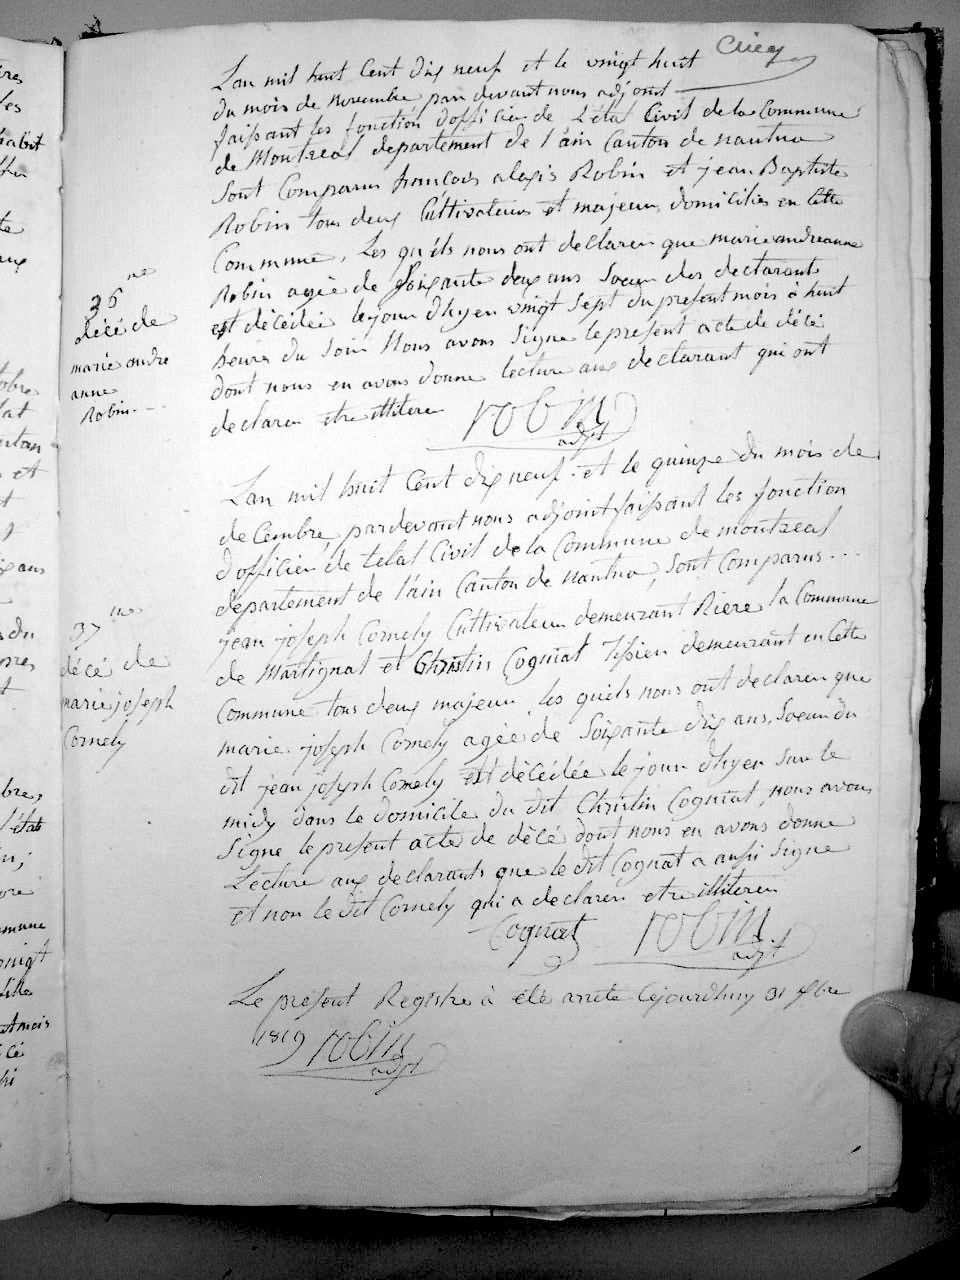 L'an mil huit Cent dix neuf et le vingt huit
du mois de novembre par devant nous adjoint
faissant les fonction d'officier de L'état Civil de la Commune
de Montreal departement de l'ain Canton de nantua
Sont Comparus francois alexis Robin et jean Baptiste
Robin tous deux Cultivateurs et majeur domiciliés en Cette
Commune, Les quels nous ont declaren que marie andreanne
Robin agée de Soixante deux ans Soeur des declarant
est décédée le jour d'hyer vingt Sept du present mois à huit
heures du Soir Nous avons Signe le present acte de décé
dont nous en avons donne lecture aux declarant qui ont
declaren etre illiteren
robin
adjt
36me
décé de
marie andre
anne
Robin
L'an mil huit Cent dix neuf et le quinze du mois de
decembre par devant nous adjoint faissant les fonction
d'officier de l'etat Civil de la Commune de montreal
departement de l'ain Canton de nantua, Sont Comparus...
jean joseph Cornely Cultivateur demeurant Riere la Commune
de Martignat et Christin Cognat Tissien demeurant en Cette
Commune tous deux majeur les quels nous ont declaren que
marie joseph Cornely agée de Soixante dix ans, Soeur du
dit jean joseph Cornely est décédée le jour d'hyer Sur le
midy dans le domicile du dit Christin Cognat, nous avons
Signe le present acte de décé dont nous en avons donne
Lecture aux declarants que le dit Cognat a aussi Signe
et non le dit Cornely qui a declaren etre illiteren
Cognat robin
adjt
37me
décé de
marie joseph
Cornely
Le present Registre à été arrete Cejourdhuy 31 xbre
1819 robin
adjt